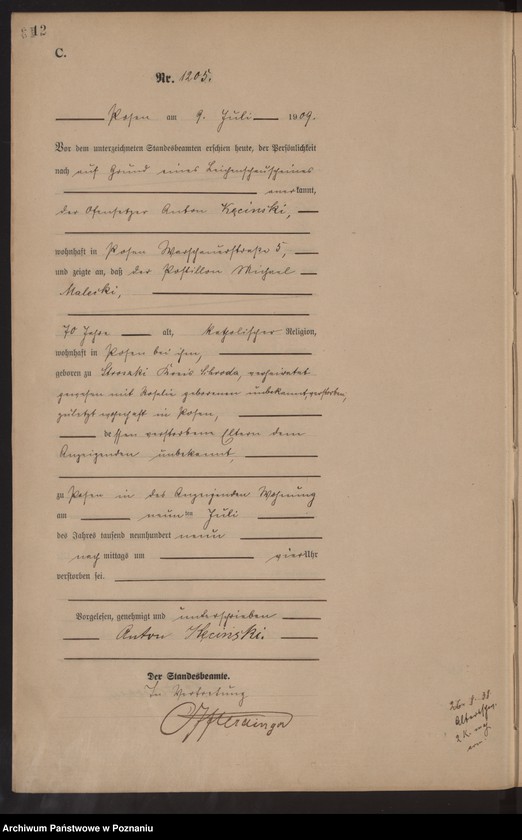 12
C.
Nr. 1205.
Posen am 9. Juli 1909.
Vor dem unterzeichneten Standesbeamten erschien heute, der Persönlichkeit
nach auf Grund eines Leichenschauscheines
anerkannt,
der Ofensetzer Anton Kęcinski,
wohnhaft in Posen Warschauerstraße 5,
und zeigte an, daß der Postillon Michael
Maleski,
70 Jahre alt, katholischer Religion,
wohnhaft in Posen bei ihm,
geboren zu Stroszki Kreis Schroda, verheiratet
gewesen mit Rosalie geborenen unbekannt verstorben,
zuletzt wohnhaft in Posen,
dessen verstorbene Eltern dem
Anzeigenden unbekannt,
zu Posen in des Anzeigenden Wohnung
am neunten Juli
des Jahres tausend neunhundert neun
nach mittags um vier Uhr
verstorben sei.
Vorgelesen, genehmigt und unterschrieben
Anton Kęciński.
Der Standesbeamte.
In Vertretung
Archiwum Państwowe w Poznaniu